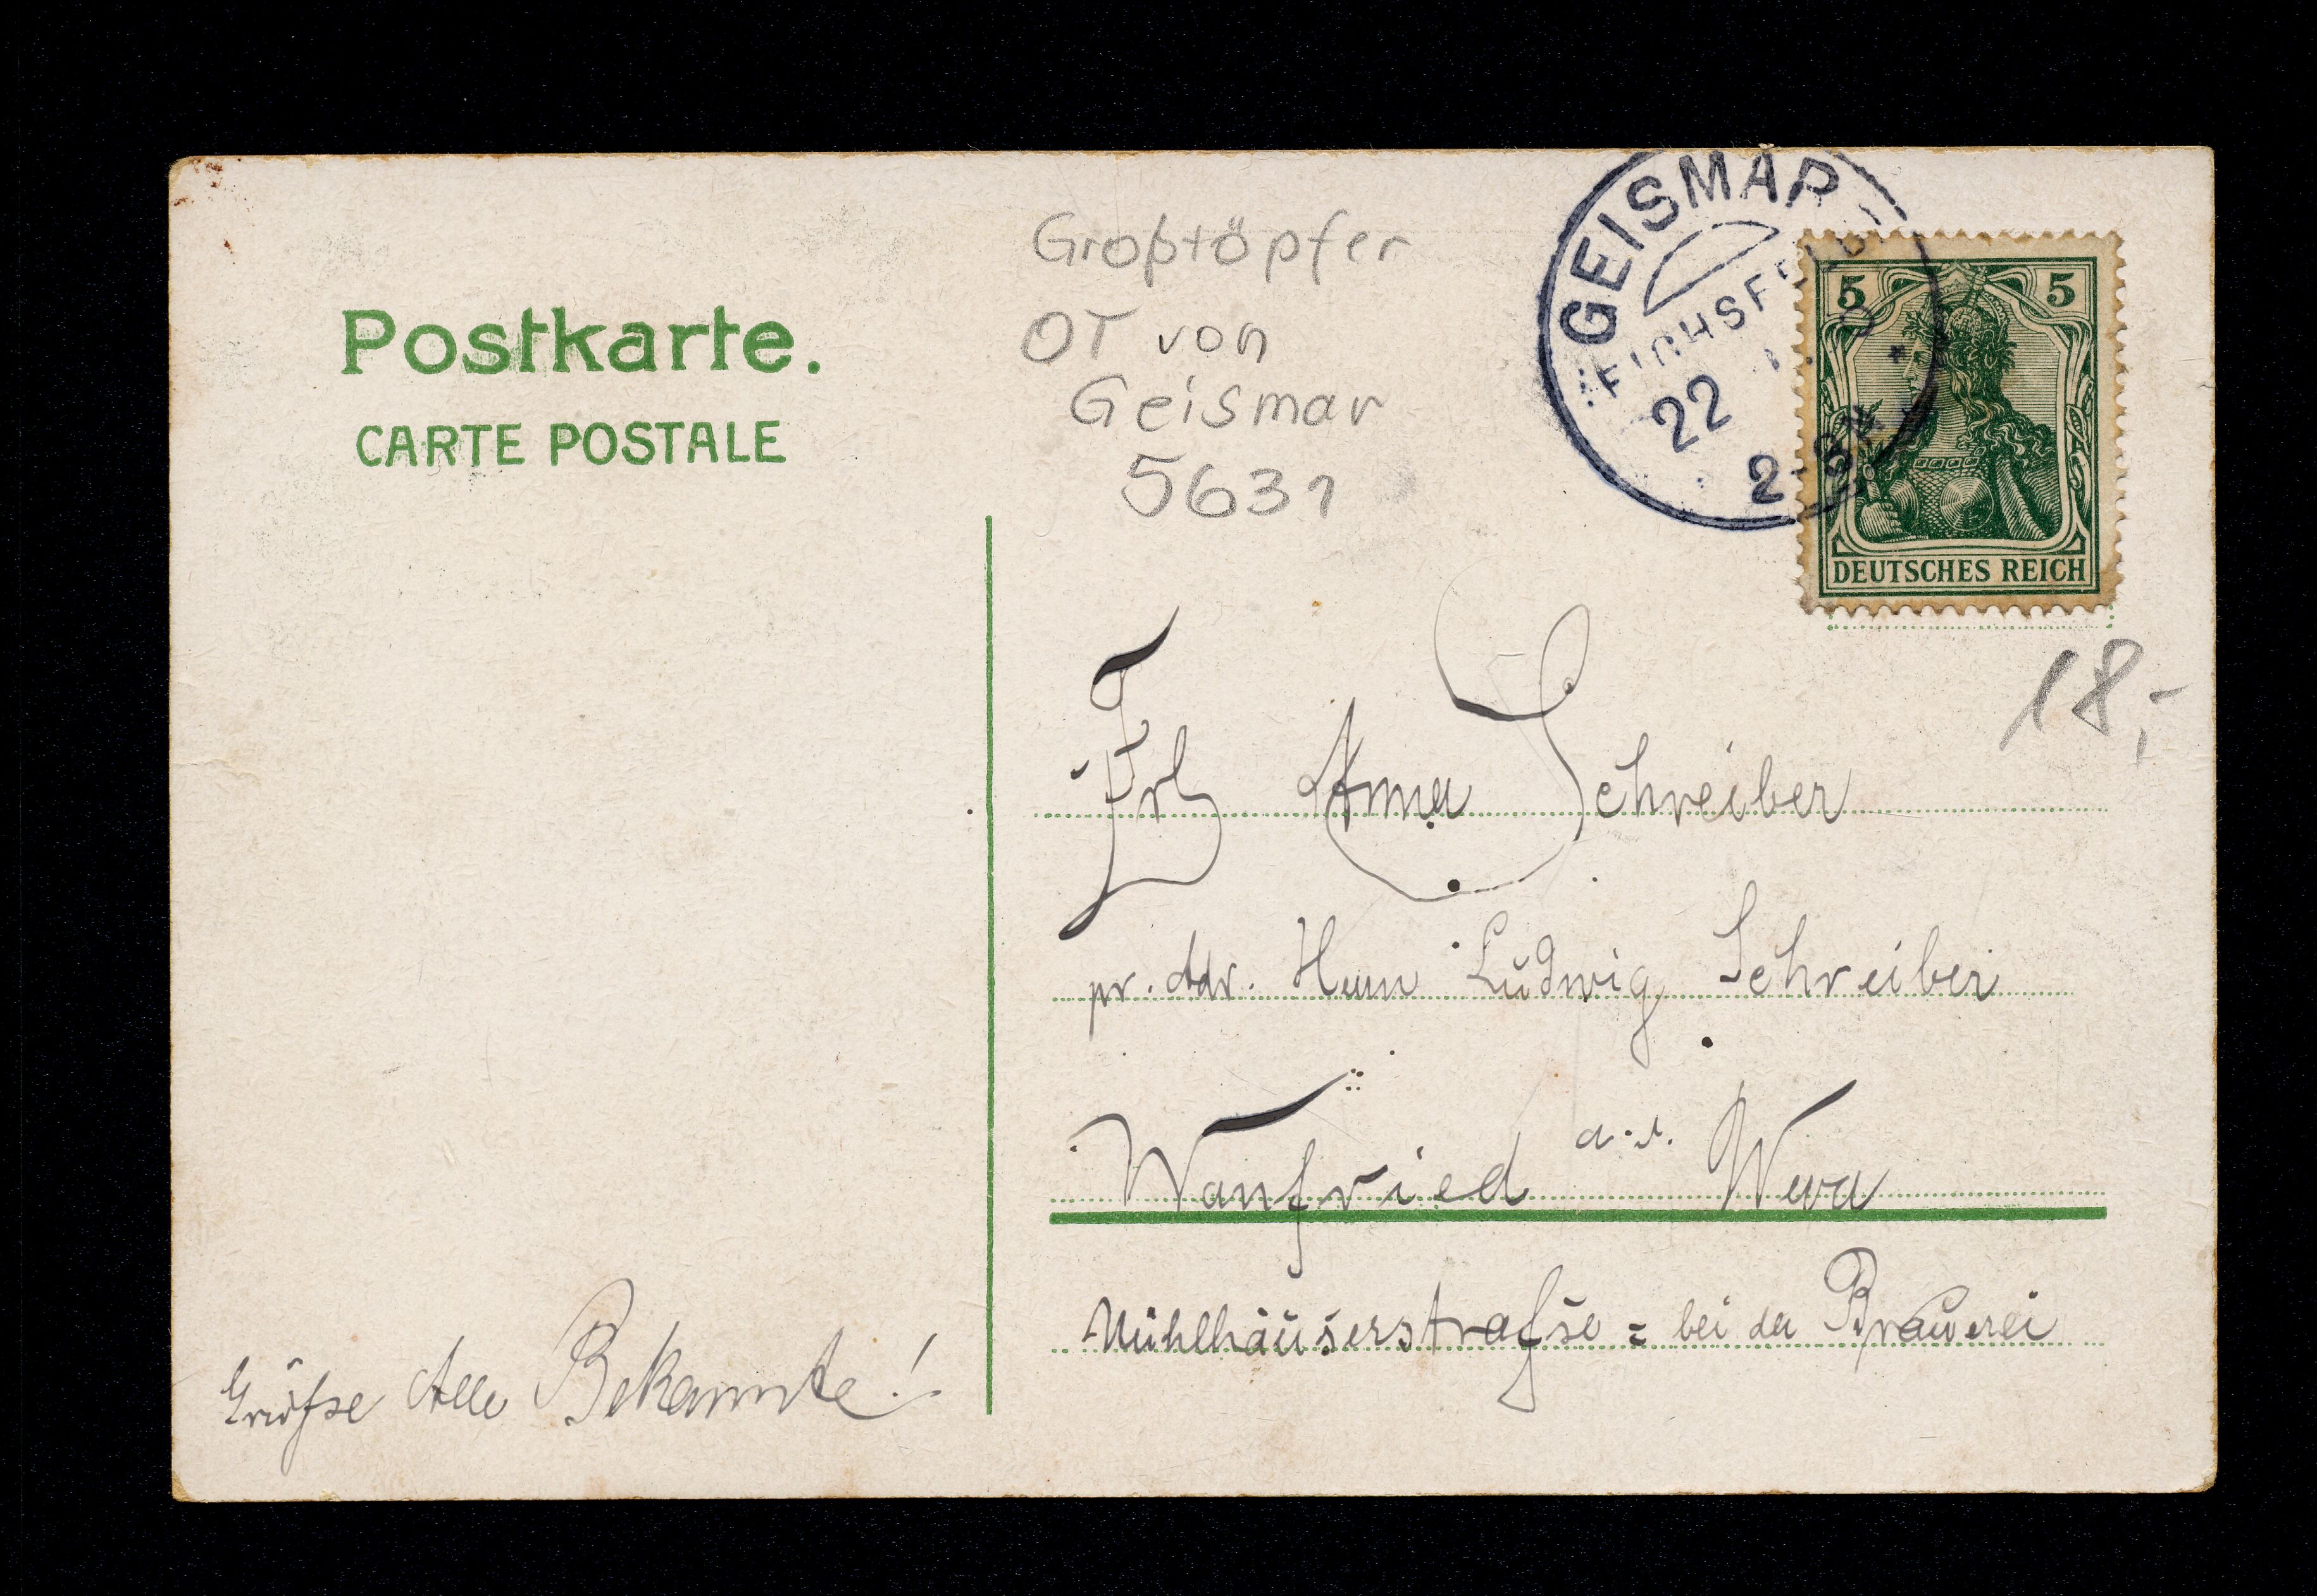 Postkarte.
CARTE POSTALE
Großtöpfer
OT von
Geismar
5631
GEISMAR
22
5 5
DEUTSCHES REICH
18,-
Frl Anna Schreiber
pr. Adr. Herrn Ludwig Schreiber
Wanfried a. d. Werra
Mühlhäuserstrafse = bei der Brauerei
Grüfse Alle Bekannte!